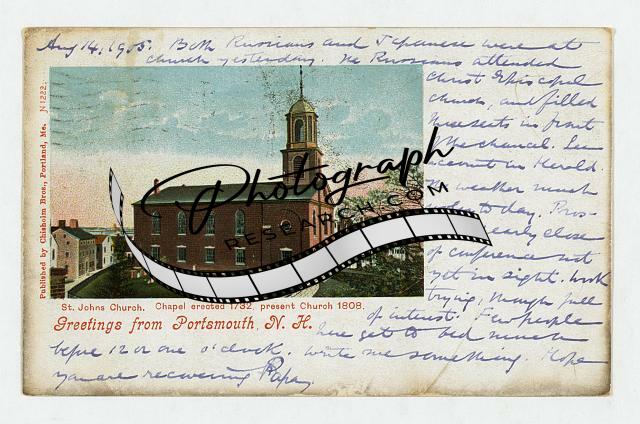 Aug 14, 1905. Both Russians and Japanese were at
church yesterday. The Russians attended
Christ Episcopal
church, and filled
seats in front
the chancel. See
account in Herald.
weather much
to day. Pros-
early close
of conference not
yet in sight. Work
trying, though full
of interest. Few people
here get to bed much
before 12 or one o'clock. Write me something. Hope
you are recovering Papa.
Published by Chisholm Bros., Portland, Me. N 1222.
Photograph
RESEARCH.COM
St. Johns Church. Chapel erected 1732, present Church 1808.
Greetings from Portsmouth, N. H.